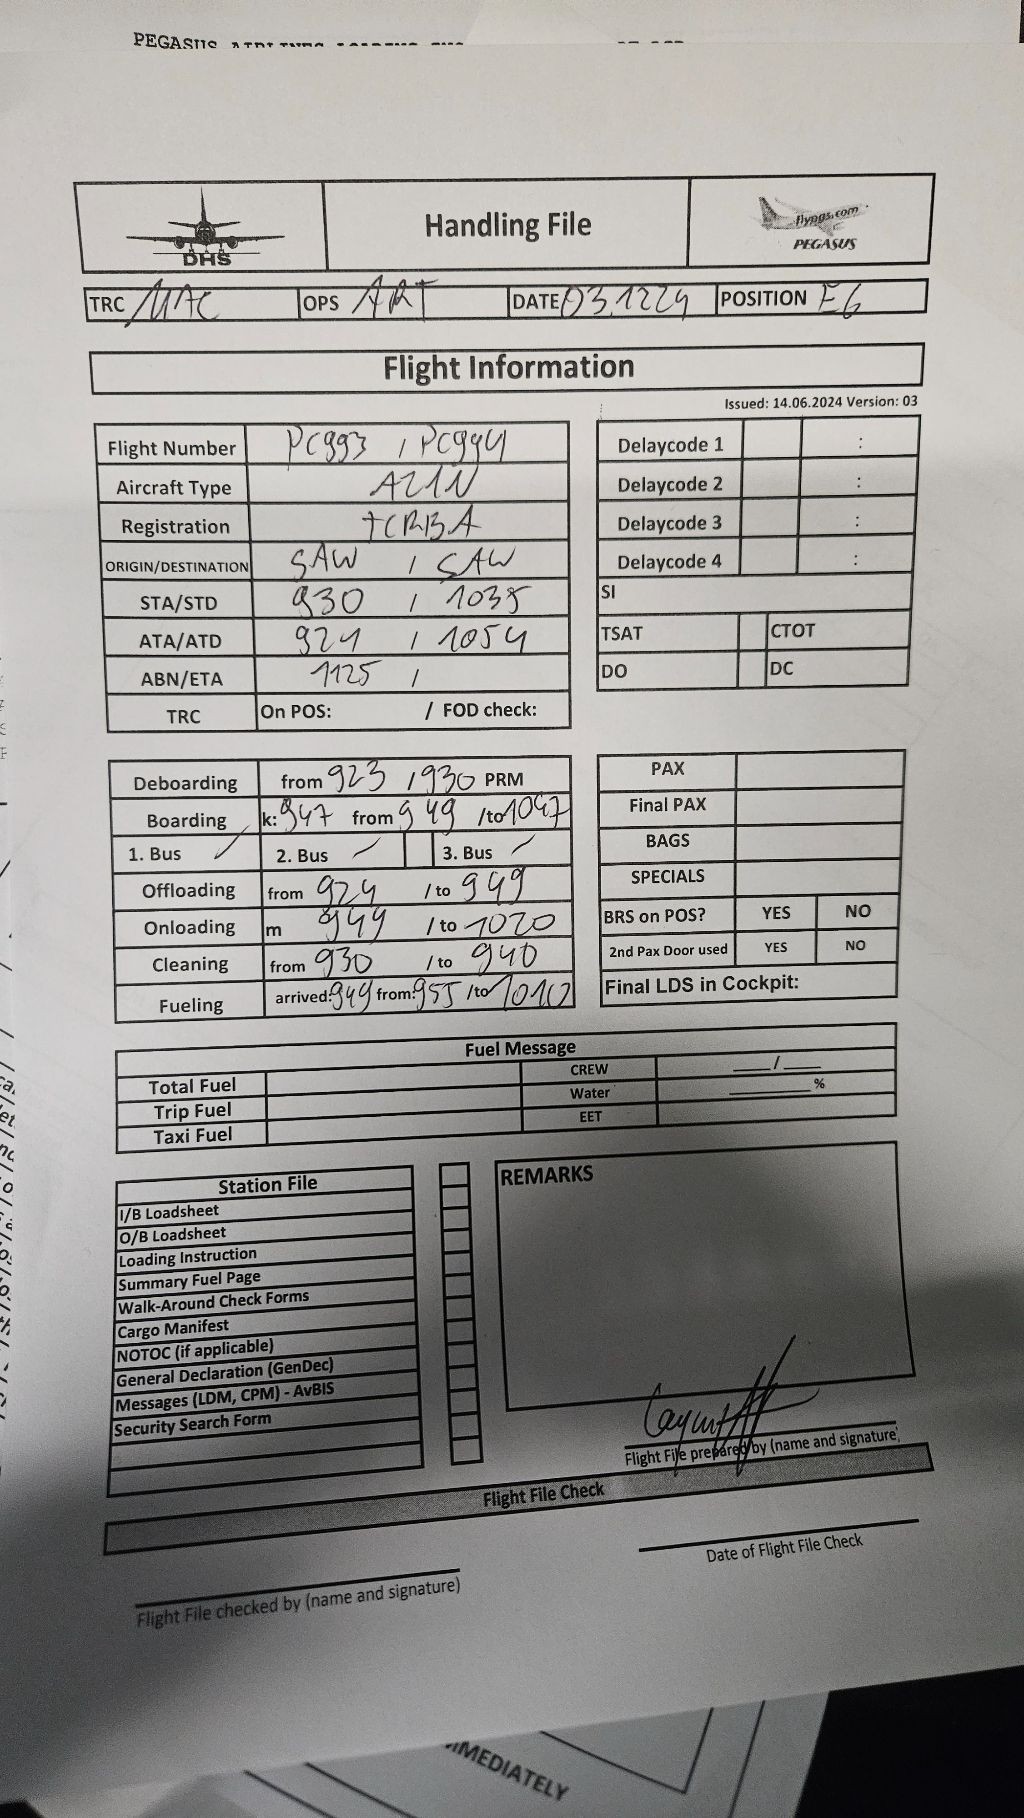 PEGASUS AIRLINES LOADING
DHS
Handling File
flypgs.com
PEGASUS
TRC MAC OPS ART DATE 03.1224 POSITION E6
Flight Information
Issued: 14.06.2024 Version: 03
Flight Number PC993 / PC994
Aircraft Type A21N
Registration TCRBA
ORIGIN/DESTINATION SAW / SAW
STA/STD 930 / 1035
ATA/ATD 921 / 1054
ABN/ETA 1125 /
TRC On POS: / FOD check:
Delaycode 1 :
Delaycode 2 :
Delaycode 3 :
Delaycode 4 :
SI
TSAT CTOT
DO DC
Deboarding from 923 / 930 PRM
Boarding k: 947 from 949 /to 1047
1. Bus 2. Bus 3. Bus
Offloading from 924 / to 949
Onloading m 949 / to 1020
Cleaning from 930 / to 940
Fueling arrived: 949 from: 955 /to 1010
PAX
Final PAX
BAGS
SPECIALS
BRS on POS? YES NO
2nd Pax Door used YES NO
Final LDS in Cockpit:
Fuel Message
Total Fuel CREW ___/___
Trip Fuel Water ______%
Taxi Fuel EET
Station File
I/B Loadsheet
O/B Loadsheet
Loading Instruction
Summary Fuel Page
Walk-Around Check Forms
Cargo Manifest
NOTOC (if applicable)
General Declaration (GenDec)
Messages (LDM, CPM) - AvBIS
Security Search Form
REMARKS
Flight File prepared by (name and signature)
Flight File Check
Flight File checked by (name and signature)
Date of Flight File Check
IMMEDIATELY